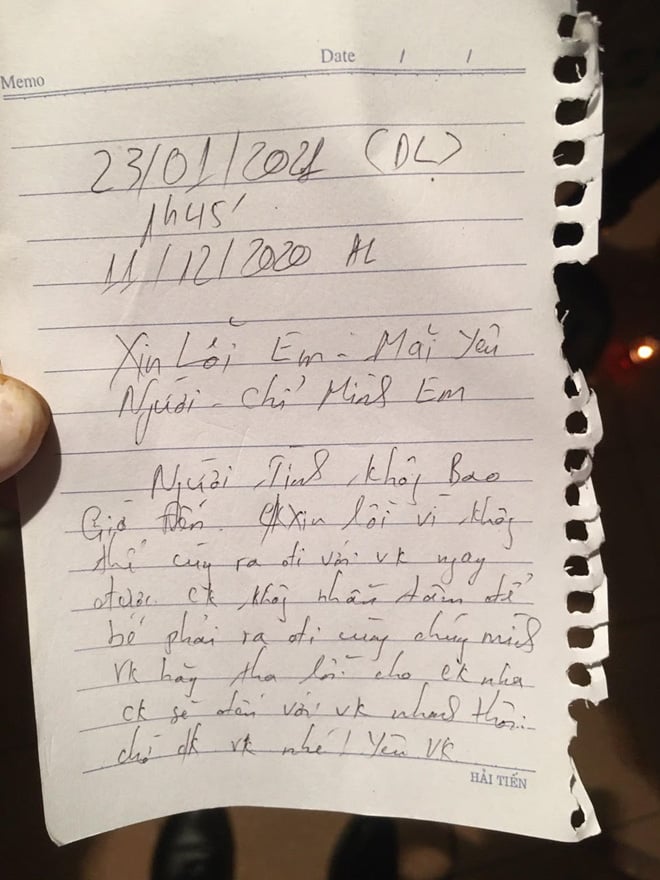 Memo
Date / /
23/01/2021 (DL)
1h45'
11/12/2020 AL
Xin Lỗi Em - Mãi Yêu
Người - Chỉ Mình Em
Người Tình Không Bao
Giờ Đến. CK Xin lỗi vì không
thể cùng ra đi với vk ngay
được. ck không nhẫn tâm để
bé phải ra đi cùng chúng mình
Vk hãy tha lỗi cho ck nha
ck sẽ đến với vk nhanh thôi.
chờ ck vk nhé! Yêu VK
HẢI TIẾN